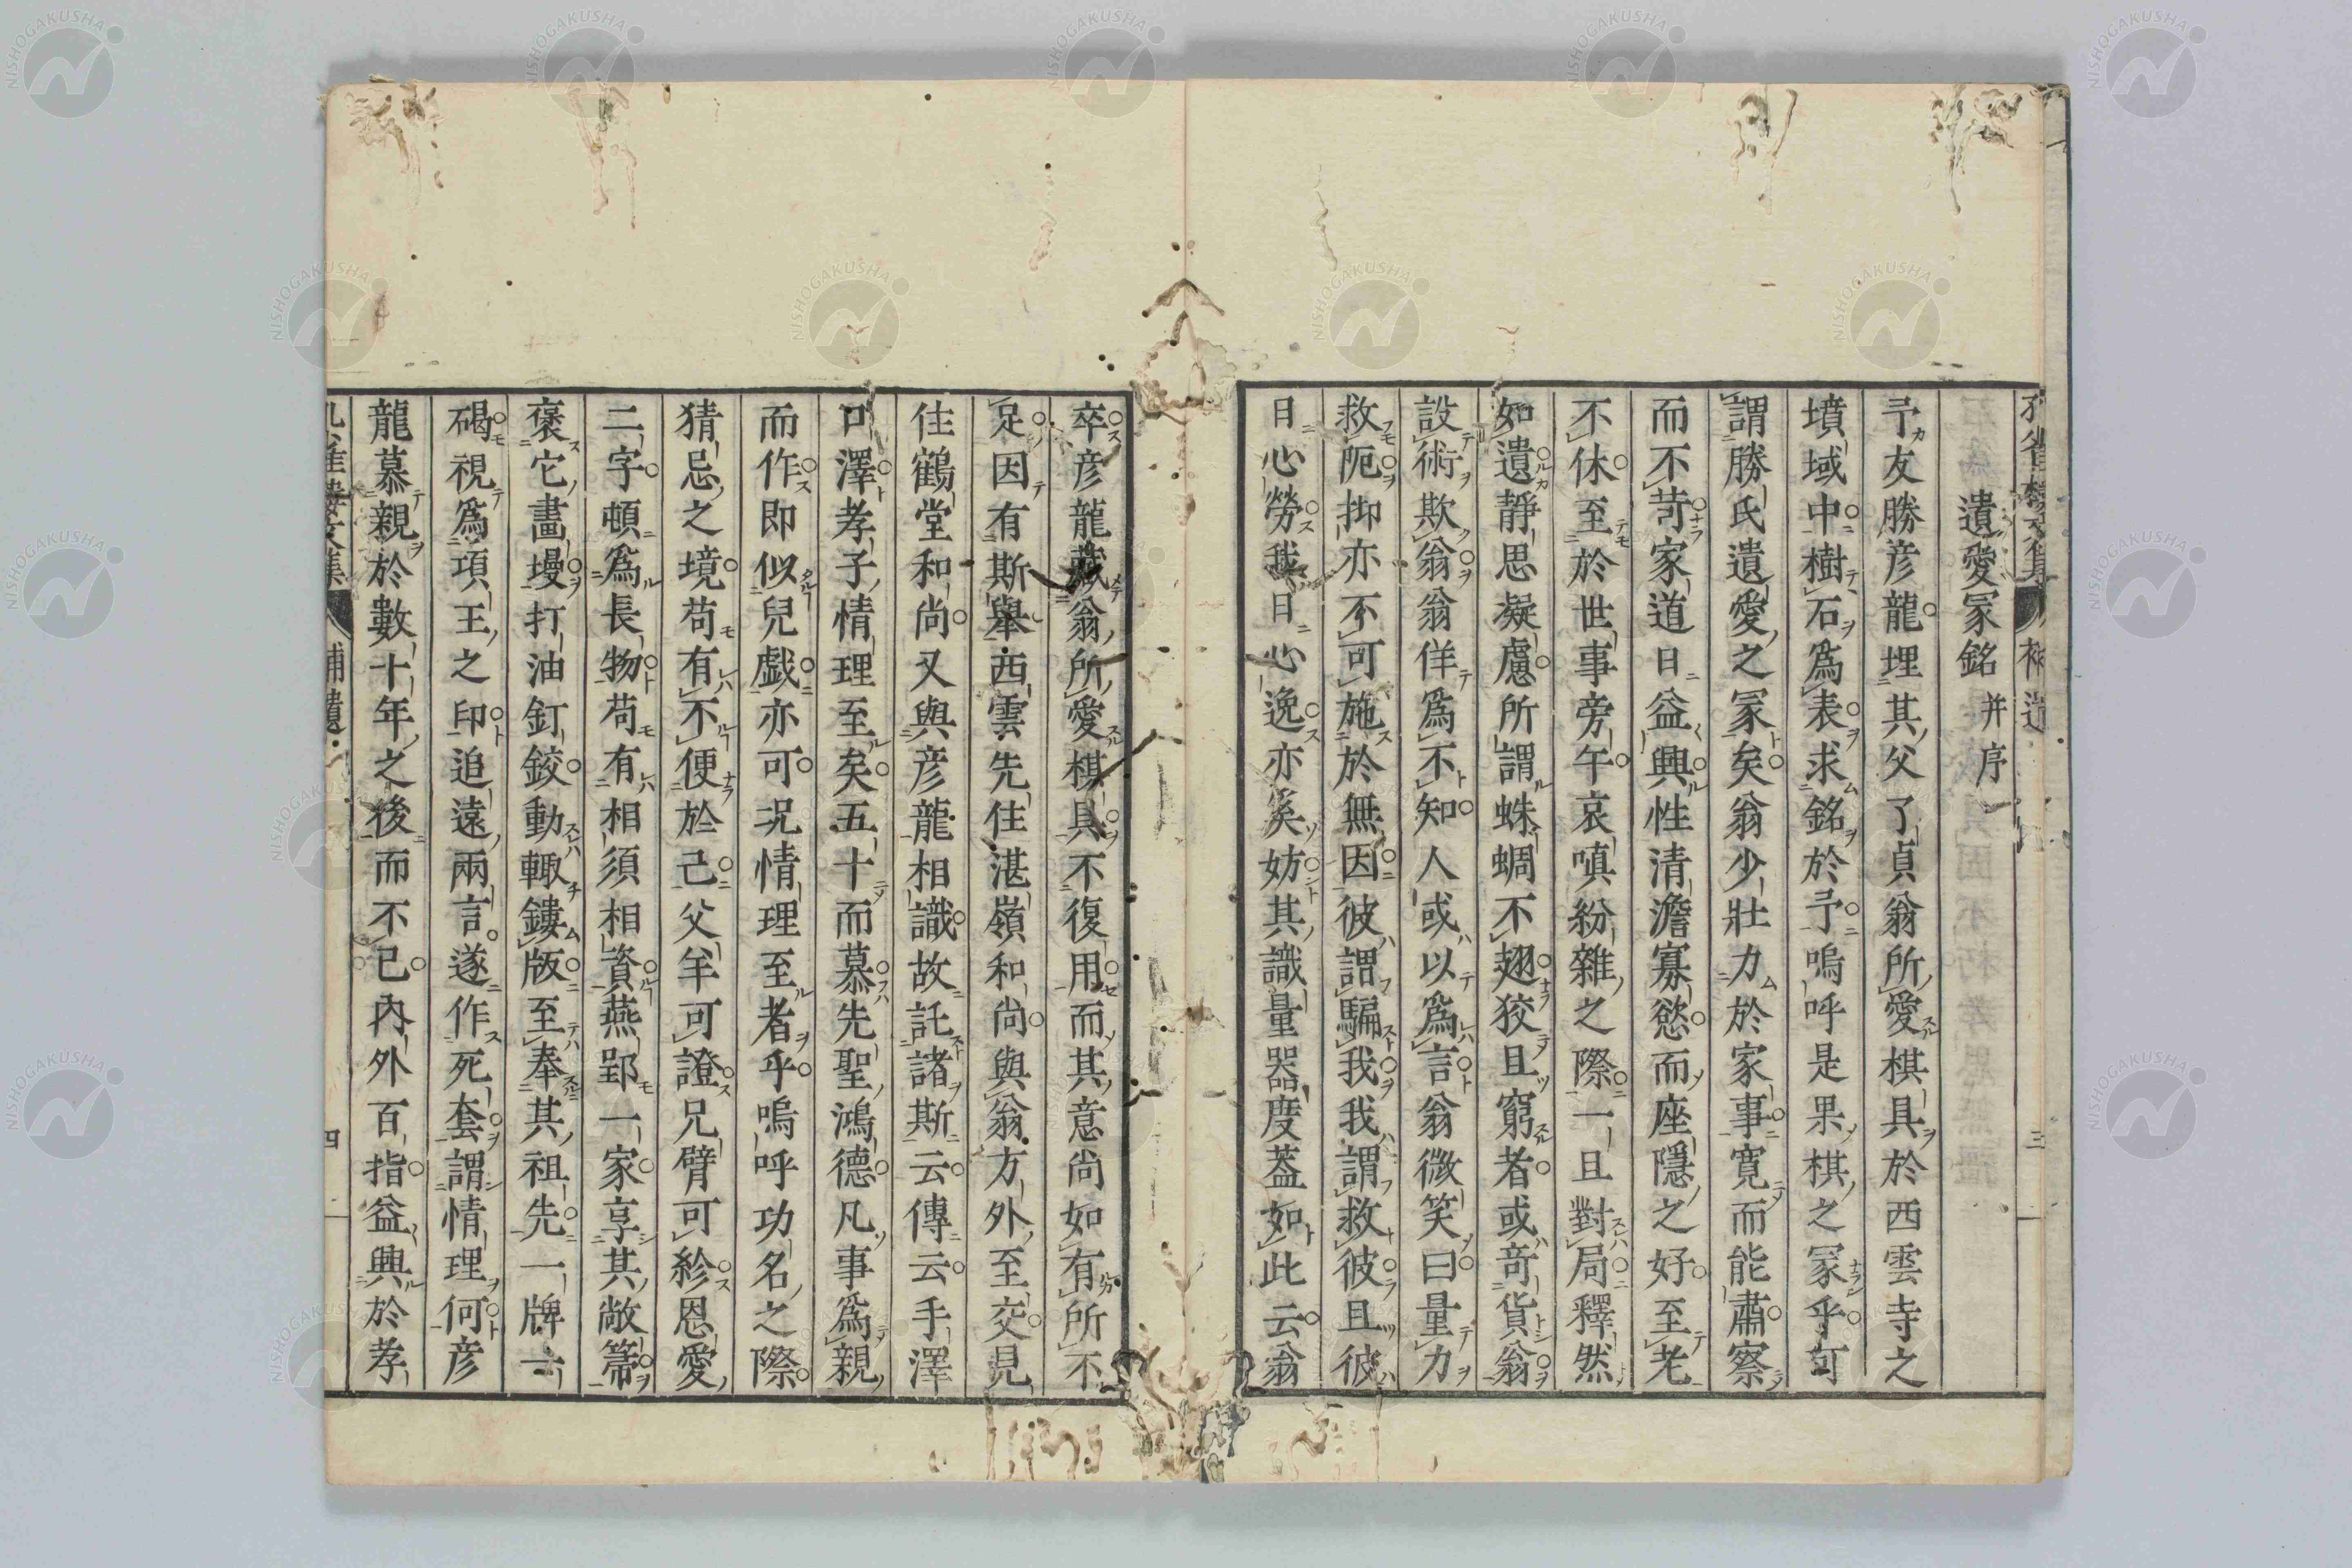 遺愛冢銘 并序
予友勝彦龍埋其父了貞翁所愛棋具於西雲寺之
墳域中樹石爲表求銘於予嗚呼是果棋之冢乎可
謂勝氏遺愛之冢矣翁少壯力於家事寬而能肅察
而不苛家道日益興性清澹寡慾而座隱之好至老
不休至於世事旁午哀嗔紛雜之際一且對局釋然
如遺靜思凝慮所謂蛛蜩不翅狡且窮者或奇貨翁
設術欺翁翁佯爲不知人或以爲言翁微笑曰量力
救阨抑亦不可施於無因彼謂騙我我謂救彼且彼
日心勞我日心逸亦奚妨其識量器度蓋如此云翁
卒彦龍藏翁所愛棋具不復用而其意尚如有所不
足因有斯舉西雲先住湛嶺和尚與翁方外至交見
住鶴堂和尚又與彦龍相識故託諸斯云傳云手澤
口澤孝子情理至矣五十而慕先聖鴻德凡事爲親
而作即似兒戲亦可况情理至者乎嗚呼功名之際
猜忌之境苟有不便於己父羊可證兄臂可紾恩愛
二字頓爲長物苟有相須相資燕郢一家享其敝帚
褒它畫墁打油釘鉸動輙鏤版至奉其祖先一牌一
碣視爲項王之印追遠兩言遂作死套謂情理何彦
龍慕親於數十年之後而不已內外百指益興於孝
補遺
三
四
NISHOGAKUSHA